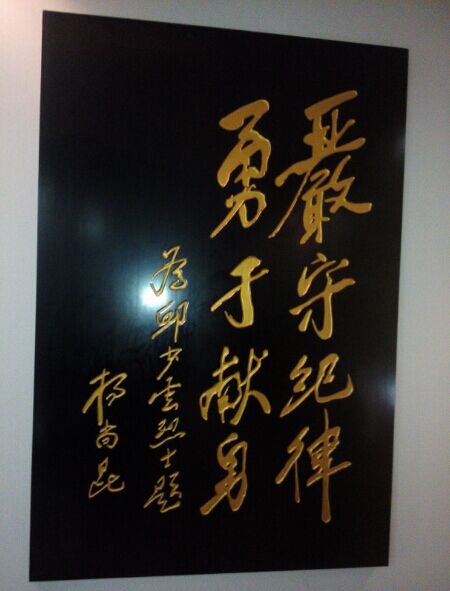 嚴守纪律
勇于献身
为邱少云烈士题
杨尚昆